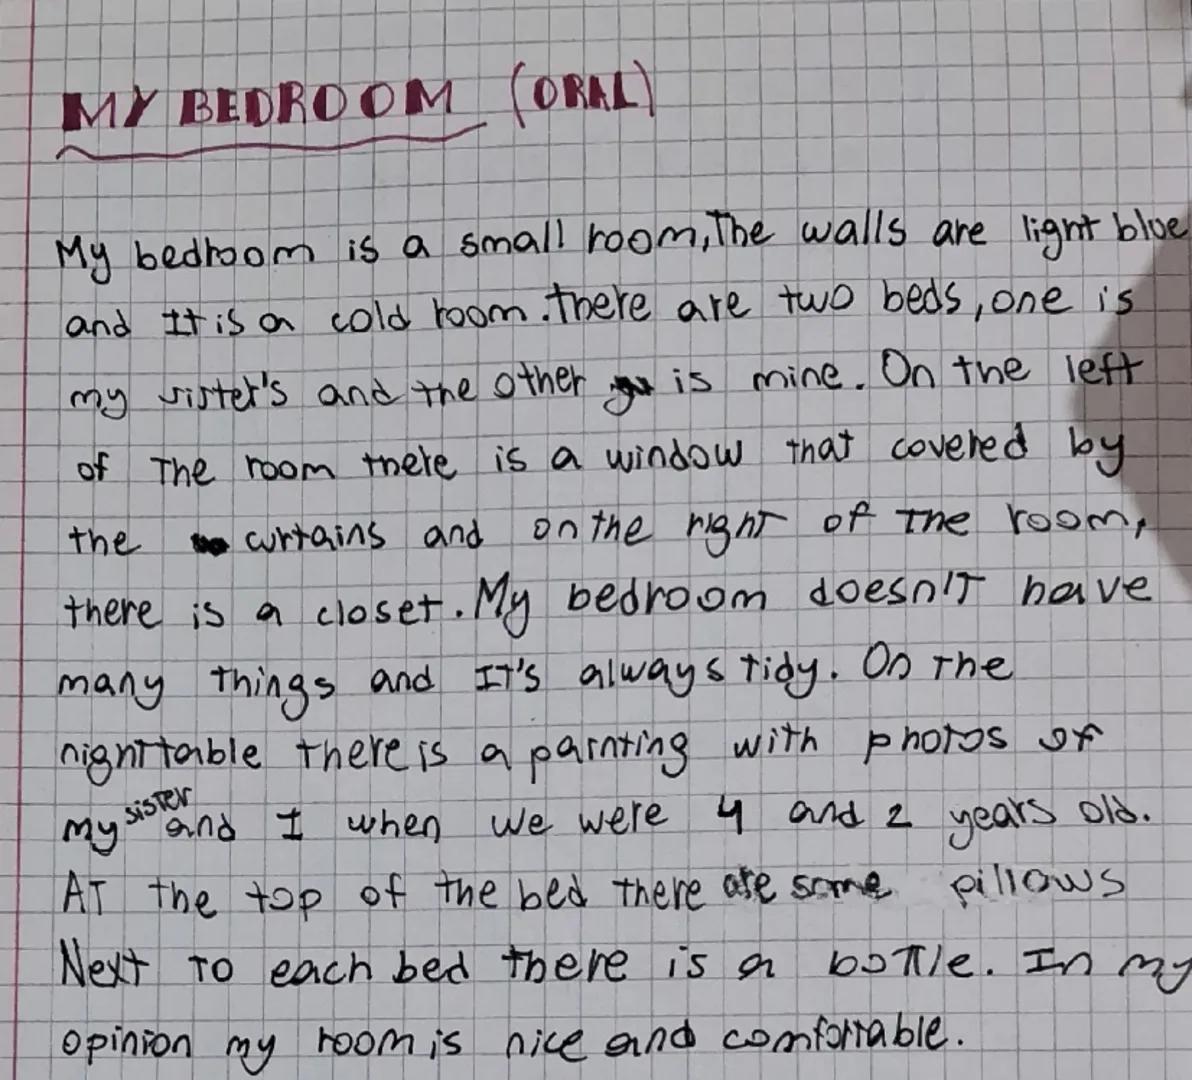 MY BEDROOM (ORAL)
My bedroom is a small room, The walls are light blue
and It is a cold room. there are two beds, one is
my sister's and the other is mine. On the left
of The room there is a window that covered by
the curtains and on the right of The room,
there is a closet. My bedroom doesn't have
many things and It's always tidy. On The
nighttable there is a painting with photos of
my sister and I when we were 4 and 2 years old.
At the top of the bed there are some pillows
Next To each bed there is a bottle. In my
opinion my room is nice and comfortable.